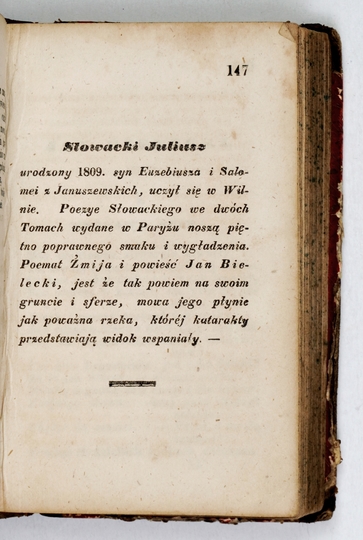 147
Słowacki Juliusz
urodzony 1809. syn Euzebiusza i Salo-
mei z Januszewskich, uczył się w Wil-
nie. Poezye Słowackiego we dwóch
Tomach wydane w Paryżu noszą pię-
tno poprawnego smaku i wygładzenia.
Poemat Żmija i powieść Jan Bie-
lecki, jest że tak powiem na swoim
gruncie i sferze, mowa jego płynie
jak poważna rzeka, któréj katarakty
przedstawiają widok wspaniały. —